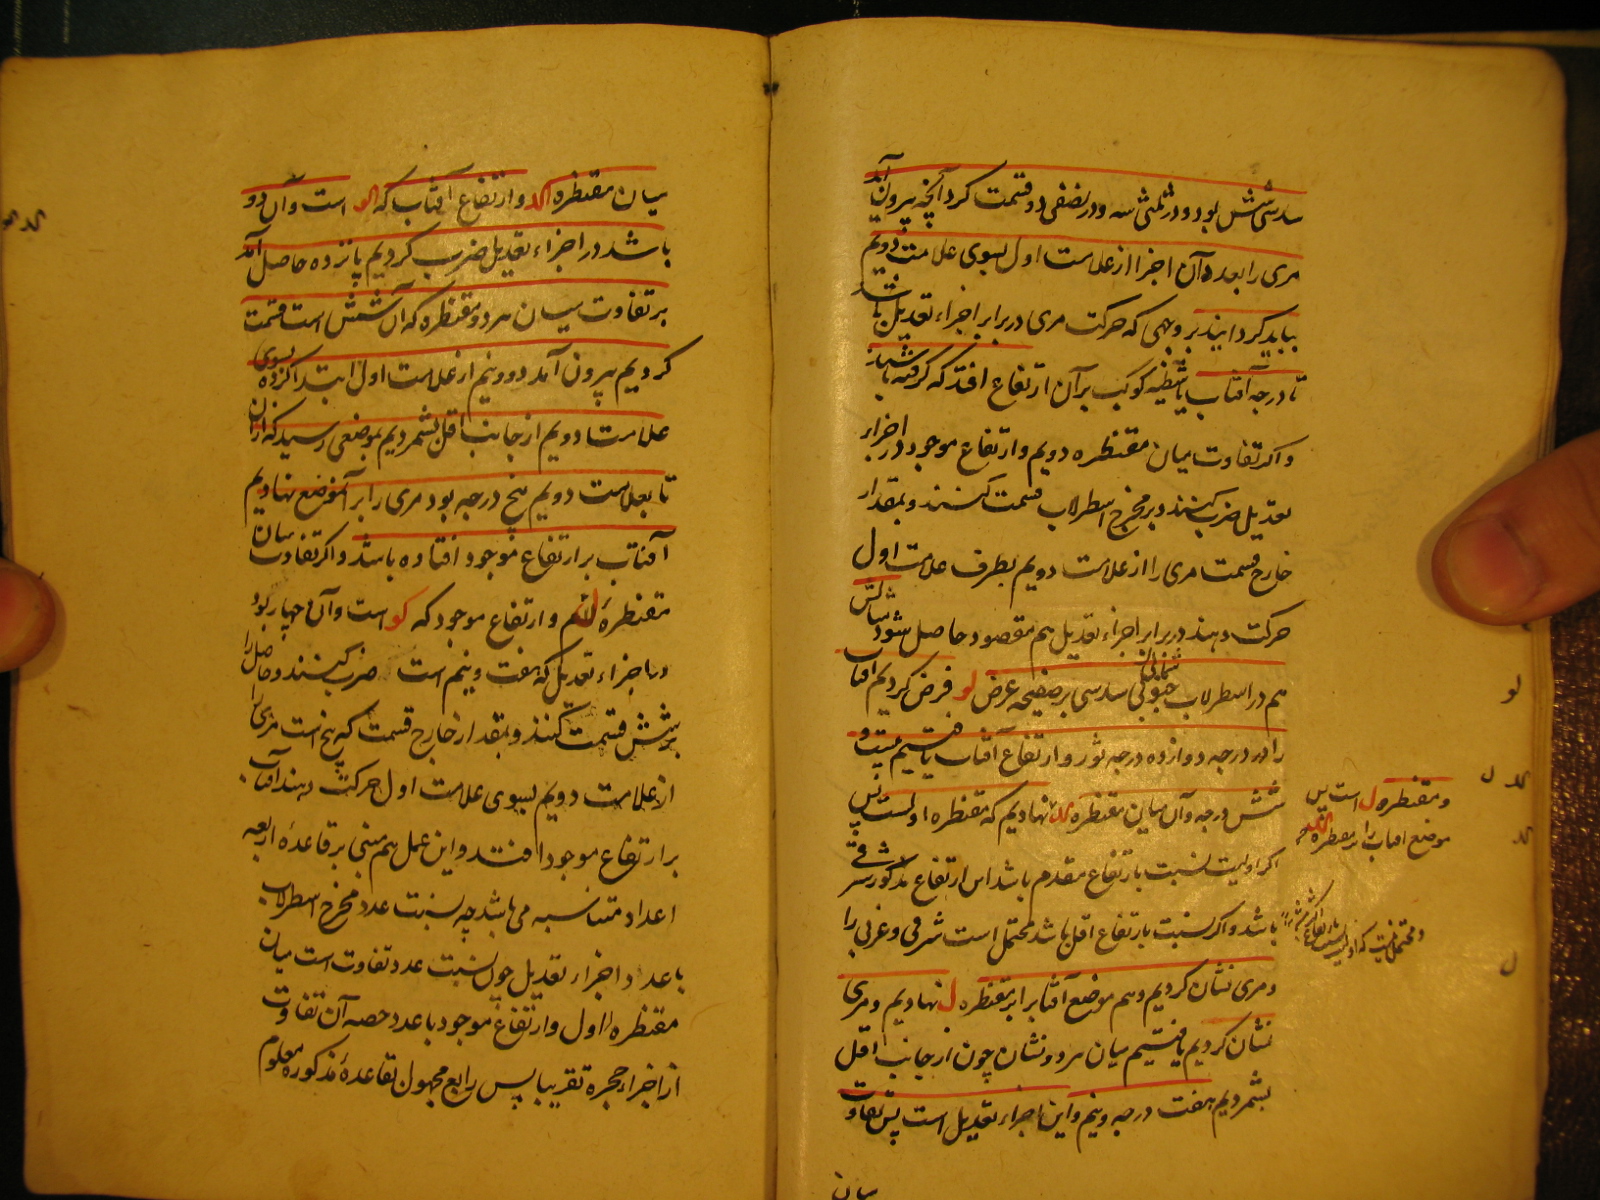 سدسی شش بود و در ثلثی سه و در نصفی دو قسمت کرد آنچه بیرون آید
مری را بعدد آن اجزا از علامت اول بسوی علامت دویم
بباید گردانید بر وجهی که حرکت مری در برابر اجزاء تعدیل باشد
تا درجه آفتاب یا شظیه کوکب بر آن ارتفاع افتد که گرفته باشند
و اگر تفاوت میان مقنطره دویم و ارتفاع موجود در اجزاء
تعدیل ضرب کنند و بر مخرج اسطرلاب قسمت کنند و بمقدار
خارج قسمت مری را از علامت دویم بطرف علامت اول
حرکت دهند در برابر اجزاء تعدیل هم مقصود حاصل شود مثالش
هم در اسطرلاب شمالی جنوبی سدسی بر صفیحه عرض لو فرض کردیم آفتاب
را در درجه دوازده درجه ثور و ارتفاع آفتاب یافتیم بیست و
شش درجه و آن میان مقنطره کد نهادیم که مقنطره اولست پس
و مقنطره ل است پس
موضع آفتاب را بر مقنطره کد
اگر اولیت نسبت بارتفاع مقدم باشد این ارتفاع مذکور شرقی
باشد و اگر نسبت بارتفاع اقل باشد محتمل است شرقی و غربی را
و مری نشان کردیم و هم موضع آفتاب را بر مقنطره ل نهادیم و مری
نشان کردیم یافتیم میان هر دو نشان چون از جانب اقل
بشمردیم هفت درجه و نیم و این اجزاء تعدیل است پس تفاوت
میان
میان مقنطره کد و ارتفاع آفتاب که کو است و آن دو
باشد در اجزاء تعدیل ضرب کردیم پانزده حاصل آمد
بر تفاوت میان هر دو مقنطره که آن شش است قسمت
کردیم بیرون آمد دو و نیم از علامت اول ابتدا کرده بسوی
علامت دویم از جانب اقل بشمردیم بموضعی رسید که از آن
تا بعلامت دویم پنج درجه بود مری را برابر آنموضع نهادیم
آفتاب بر ارتفاع موجود افتاده باشد و اگر تفاوت میان
مقنطرهٔ و ارتفاع موجود که کو است و آن چهار بود
در اجزاء تعدیل که هفت و نیم است ضرب کنند و حاصل را
بر شش قسمت کنند و بمقدار خارج قسمت که پنج است مری را
از علامت دویم بسوی علامت اول حرکت دهند آفتاب
بر ارتفاع موجود افتد و این عمل هم مبنی بر قاعدهٔ اربعه
اعداد متناسبه می باشد چه نسبت عدد مخرج اسطرلاب
با عدد اجزاء تعدیل چون نسبت عدد تفاوت است میان
مقنطره اول و ارتفاع موجود با عدد حصه آن تفاوت
از اجزاء حجره تقریبا پس رابع مجهول بقاعدهٔ مذکوره معلوم